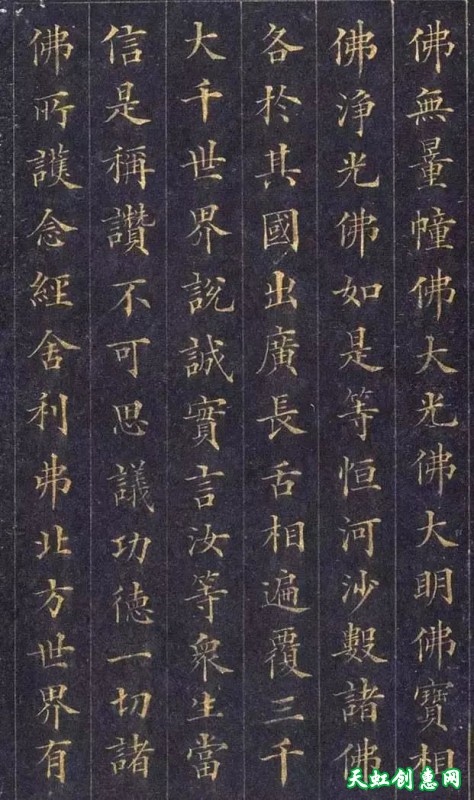 佛無量幢佛大光佛大明佛寶相
佛淨光佛如是等恒河沙數諸佛
各於其國出廣長舌相遍覆三千
大千世界說誠實言汝等衆生當
信是稱讚不可思議功德一切諸
佛所護念經舍利弗北方世界有
天虹创惠网